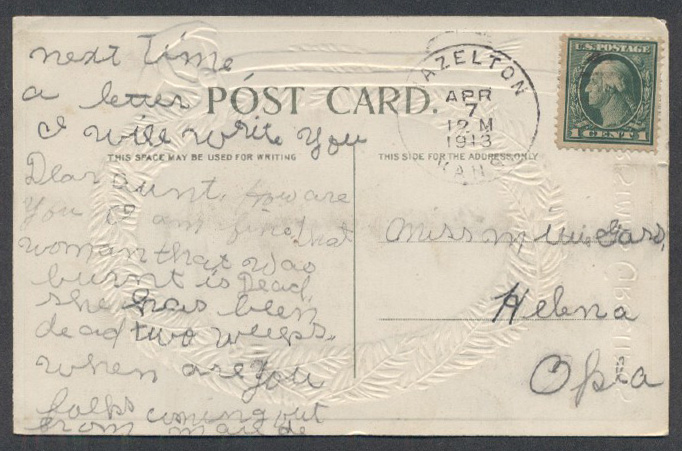 next Time
a letter
I will write you
POST CARD.
AZELTON
APR
7
12 M
1913
U.S. POSTAGE
1 CENT 1
THIS SPACE MAY BE USED FOR WRITING
THIS SIDE FOR THE ADDRESS ONLY
Dear aunt, how are
you I am fine that
woman that was
burnt is Dead,
she has been
dead two weeks.
when are you
folks coming out
from
Miss
Helena